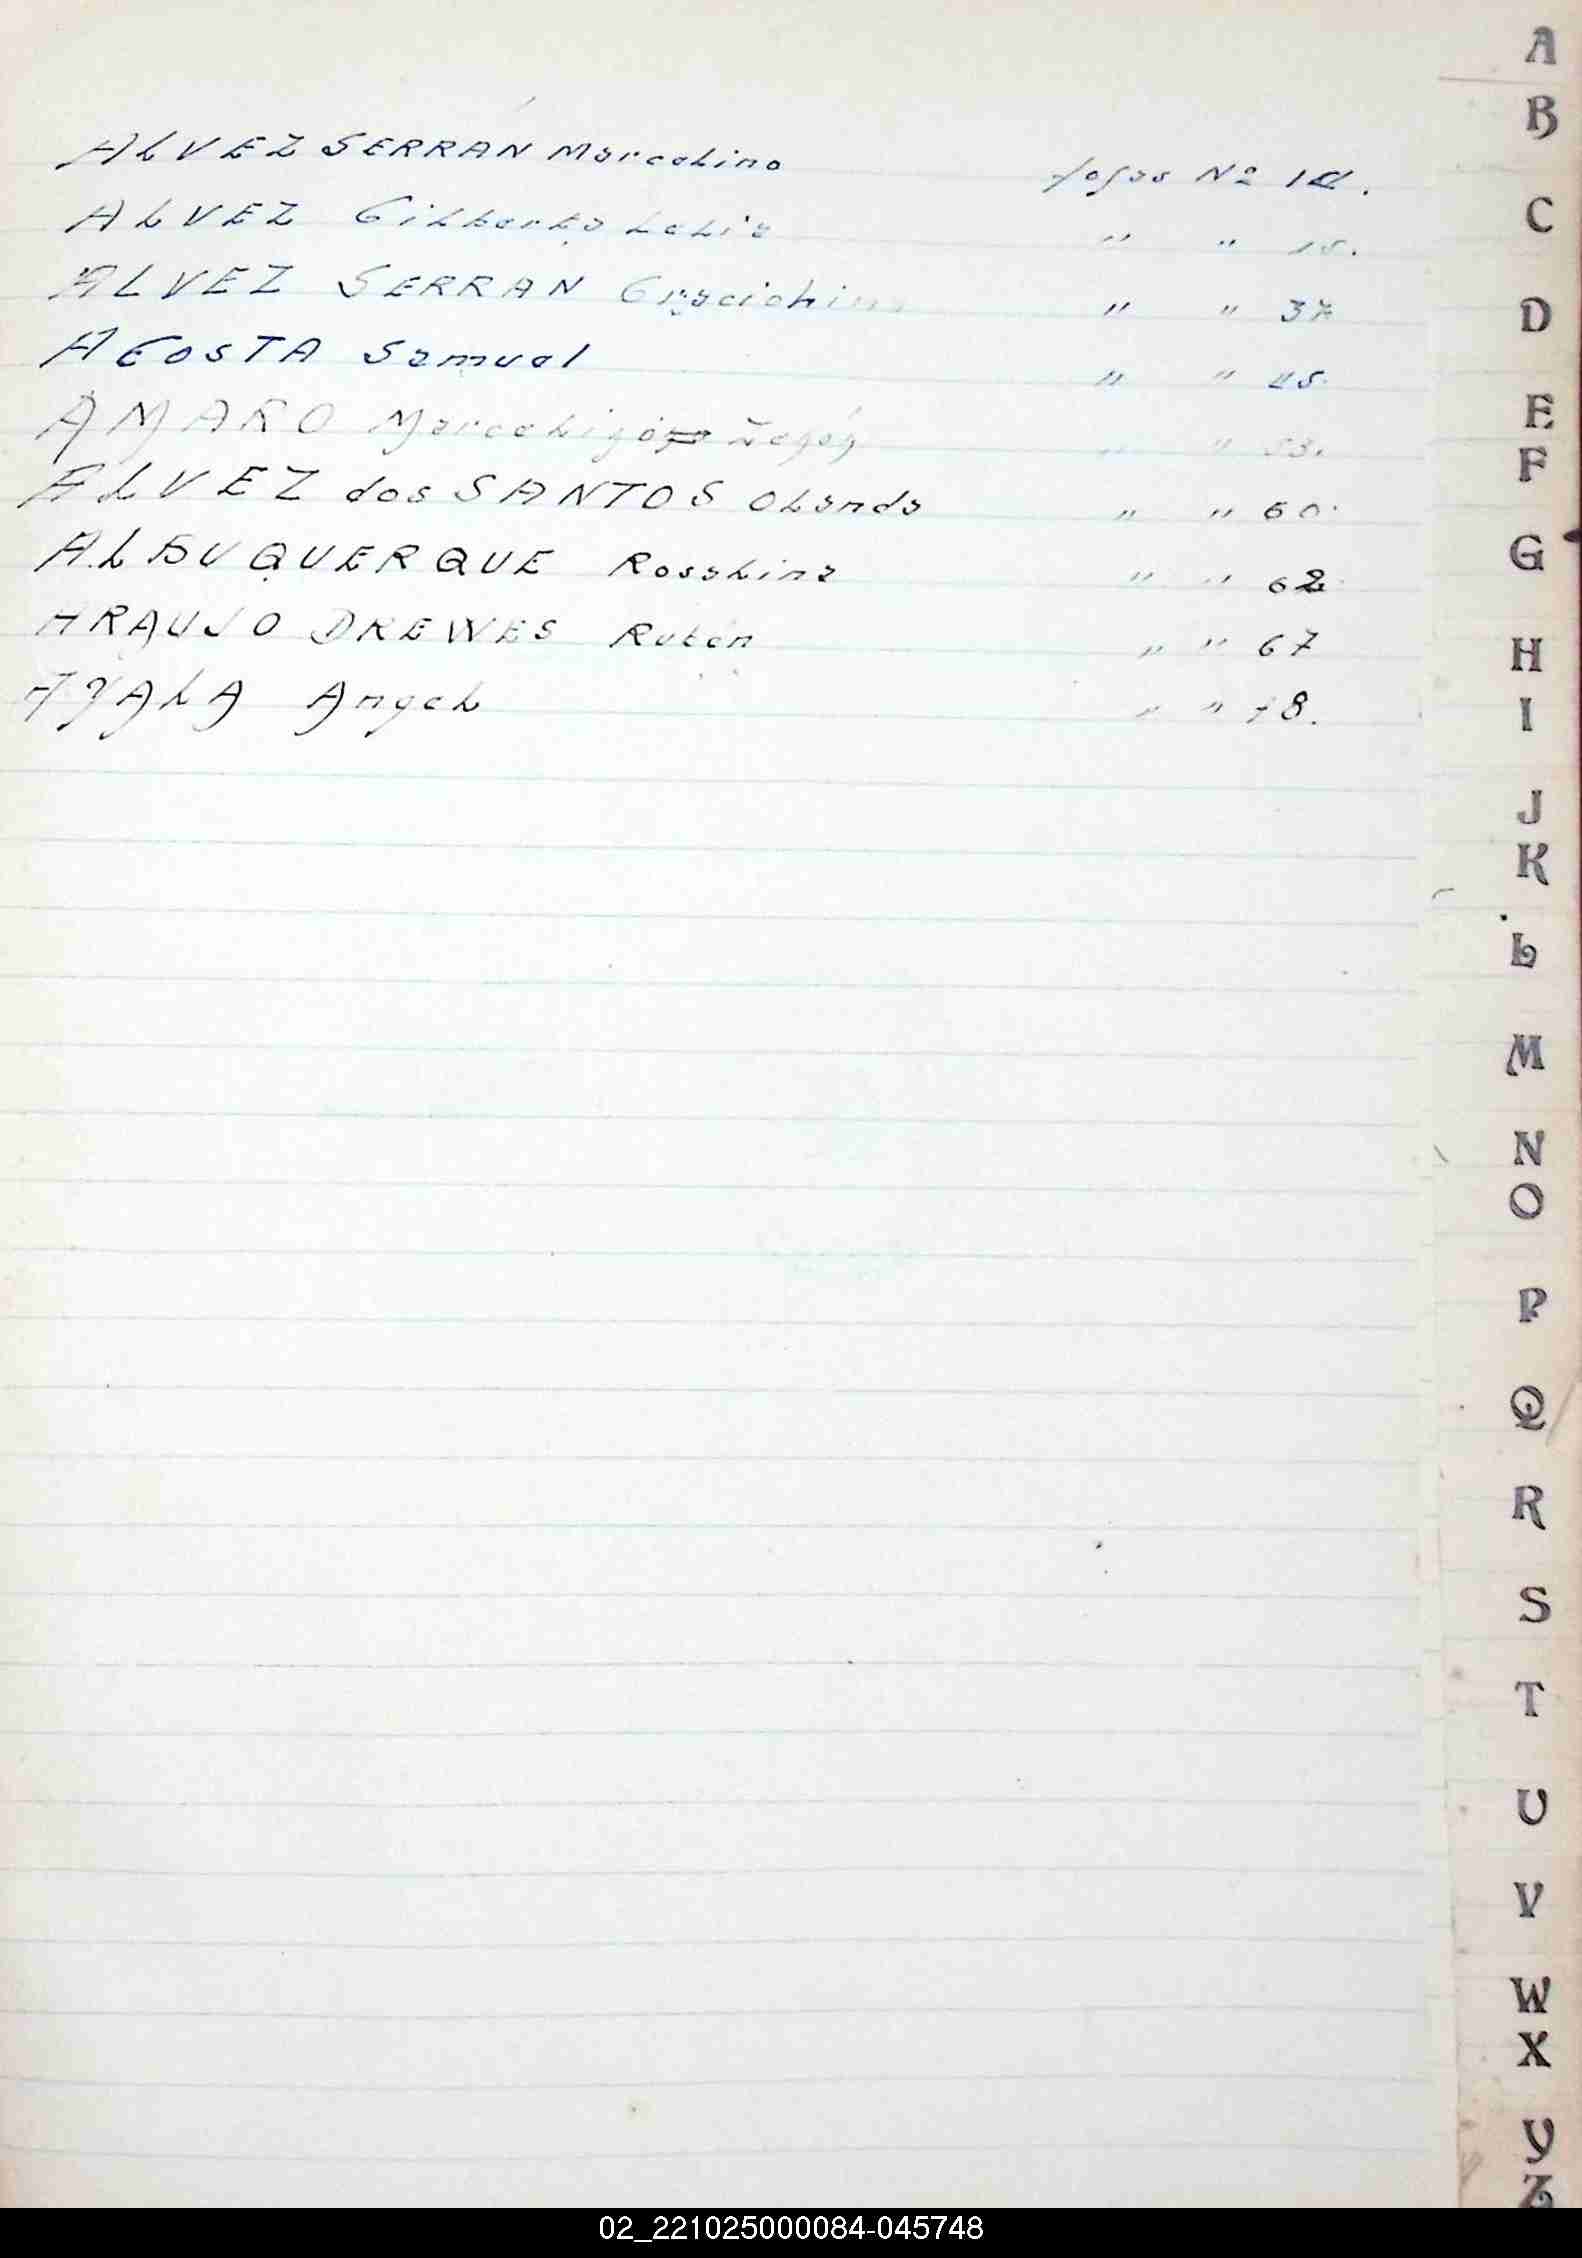 ALVEZ SERRAN Marcelino fojas Nº 14.
ALVEZ Gilberto Lelis " " 15.
ALVEZ SERRAN Gracielina " " 37
ACOSTA Samuel " " 45.
AMARO " " 53.
ALVEZ dos SANTOS Olanda " " 60.
ALBUQUERQUE Rosalina " " 62
ARAUJO DREWES Ruben " " 67
AYALA Angel " " 78.
A
B
C
D
E
F
G
H
I
J
K
L
M
N
O
P
Q
R
S
T
U
V
W
X
Y
Z
02_221025000084-045748